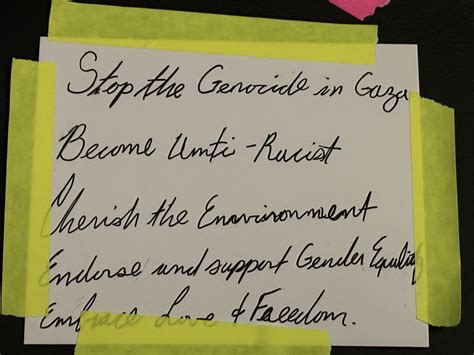 Stop the Genocide in Gaza
Become Unti-Racist
Cherish the Environment
Endorse and support Gender Equality
Embrace Love & Freedom.